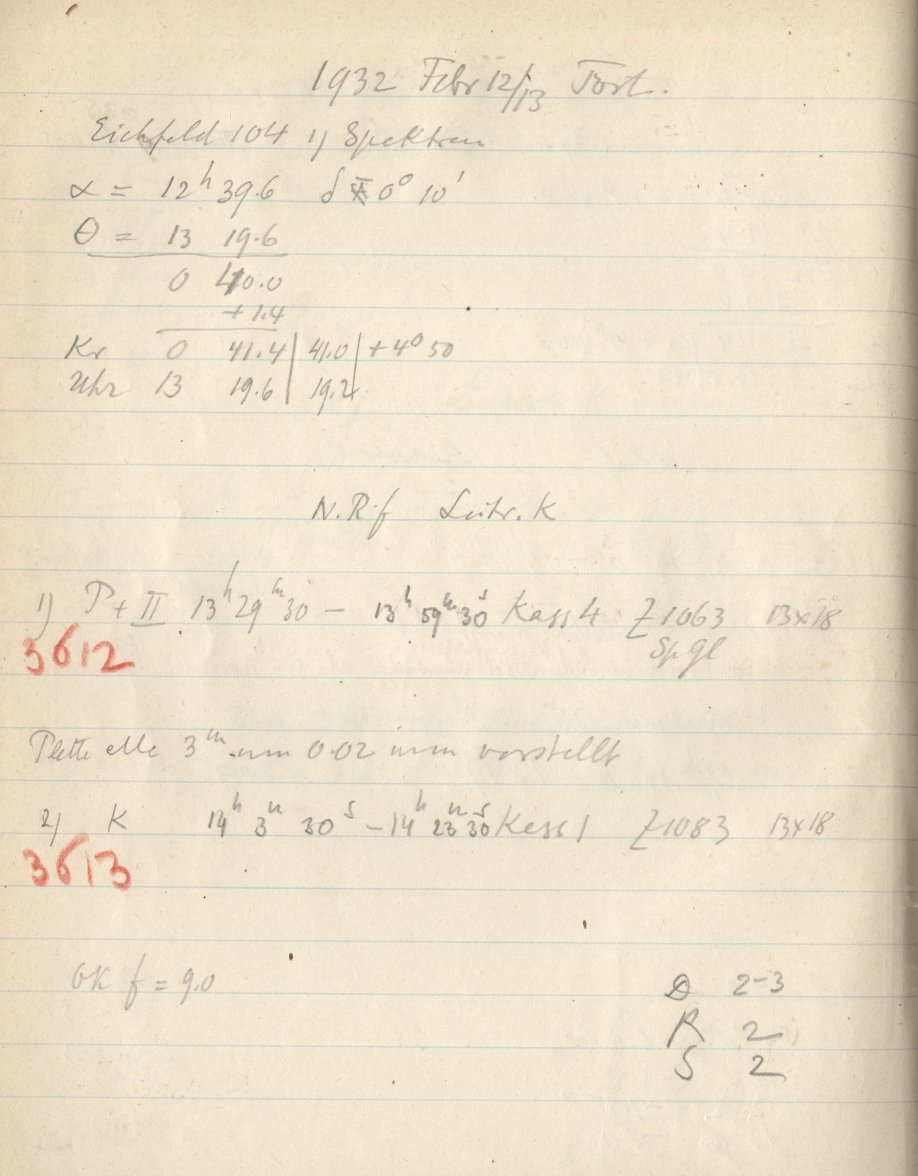 1932 Febr 12/13 Fort.
Eichfeld 104 1) Spektren
α = 12h 39.6 δ + 0° 10'
θ = 13 19.6
0 40.0
+ 1.4
Kr 0 41.4 | 41.0 | + 4° 50
Uhr 13 19.6 | 19.2
N.R.f Leitr. K
1) P + II 13h 29m 30 – 13h 59m 30s Kass 4 Z 1063 13x18
3612 Sp Gl
Platte alle 3m um 0.02 mm verstellt
2) K 14h 3m 30s – 14h 23m 30s Kass 1 Z 1083 13x18
3613
OK f = 9.0
D 2-3
R 2
S 2